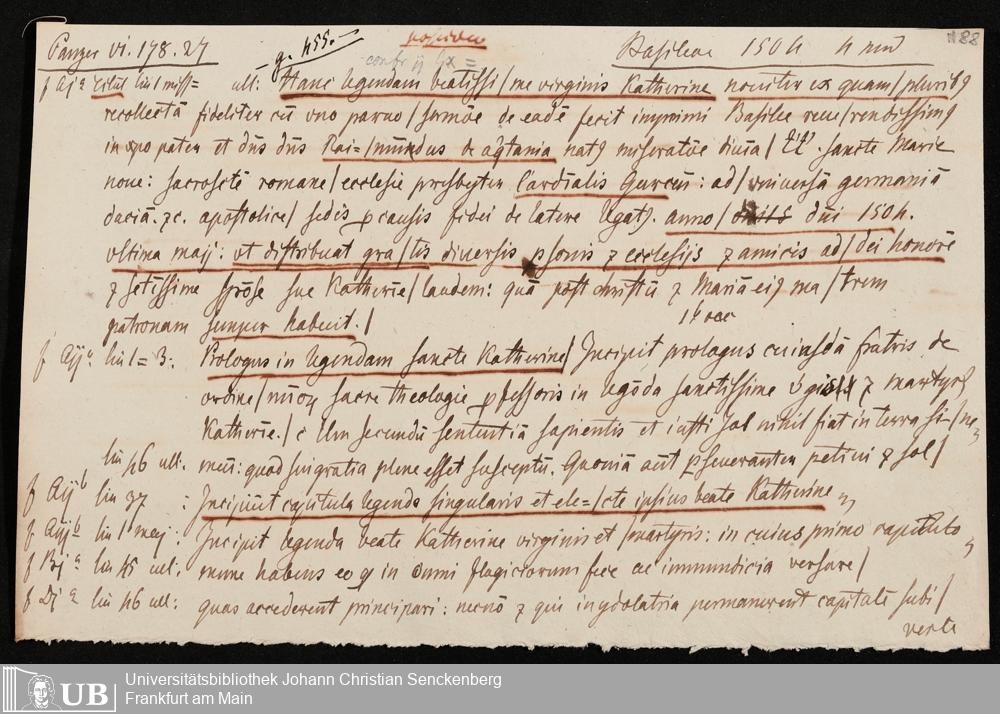 Panzer VI. 178. 27 g. 455. Basileae 1504 4 min 88
f Aja titul lin 1 miss= ult: Hanc legendam beatissi/me virginis Katherine nouiter ex quam/plurib9
recollectā fideliter cū vno paruo/sermōe de eadē fecit imprimi Basilee reue/rendissim9
in xpo pater et dñs dñs Rai=/mundus de aq̄tania nat9 miseratōe diuīa/tt̄ . sancte Marie
noue: sacrosctē romane/ecclesie presbyter Cardīalis Gurceñ: ad/vniuersā germaniā
daciā. ⁊c. apostolice/sedis p causis fidei de latere legat9. anno/ dni 1504.
vltima maij: vt distribuat gra/tis diuersis psonis ⁊ ecclesijs ⁊ amicis ad/dei honorē
⁊ sctīssime spōse sue Katherīe/laudem: quā post christū ⁊ Mariā ei9 ma/trem
patronam semper habuit./
f Aija lin 1=3: Prologus in legendam sancte Katherine/Incipit prologus cuiusdā fratris de
ordine/mīoꝝ sacre theologie pfessoris in legēda sanctissime ⁊ martyris
Katherīe./ Ulm secundū sententiā sapientis et iusti sol nihil fiat in terra si/ne
lin 46 ult. meū: quod sui gratia plene esset susceptū. Quoniā aūt pseueranter petiui ⁊ sol/
f Aijb lin 37 : Incipiūt capitula legende singularis et ele=/cte ipsius beate Katherine
f Aiijb lin 1 maj: Incipit legenda beate Katherine virginis et/martyris: in cuius primo capitulo
f Bja lin 45 ult: mune habens eo ꝙ in omni flagiciorum fece ac immundicia versare/
f Dja lin 46 ult: quas accederent principari: necnō ⁊ qui in ydolatria permanerent capitalē subi/
verte
Universitätsbibliothek Johann Christian Senckenberg
Frankfurt am Main
UB